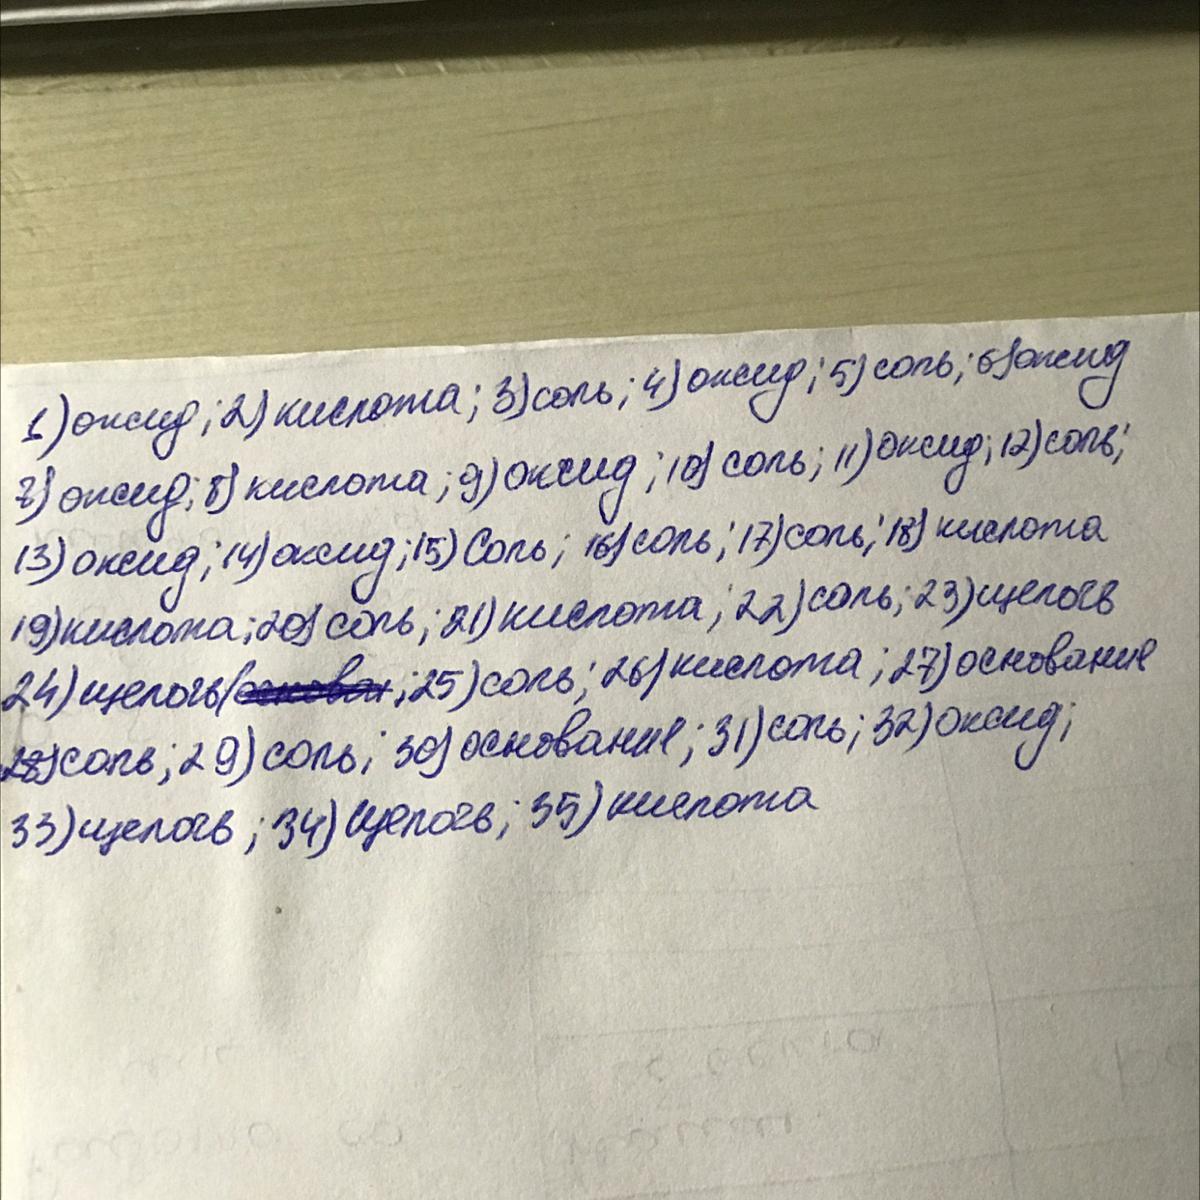 1) оксид; 2) кислота; 3) соль; 4) оксид; 5) соль; 6) оксид
7) оксид; 8) кислота; 9) оксид; 10) соль; 11) оксид; 12) соль;
13) оксид; 14) оксид; 15) Соль; 16) соль; 17) соль; 18) кислота
19) кислота; 20) соль; 21) кислота; 22) соль; 23) щелочь
24) щелочь(; 25) соль; 26) кислота; 27) основание
28) соль; 29) соль; 30) основание; 31) соль; 32) оксид;
33) щелочь; 34) Щелочь; 35) кислота